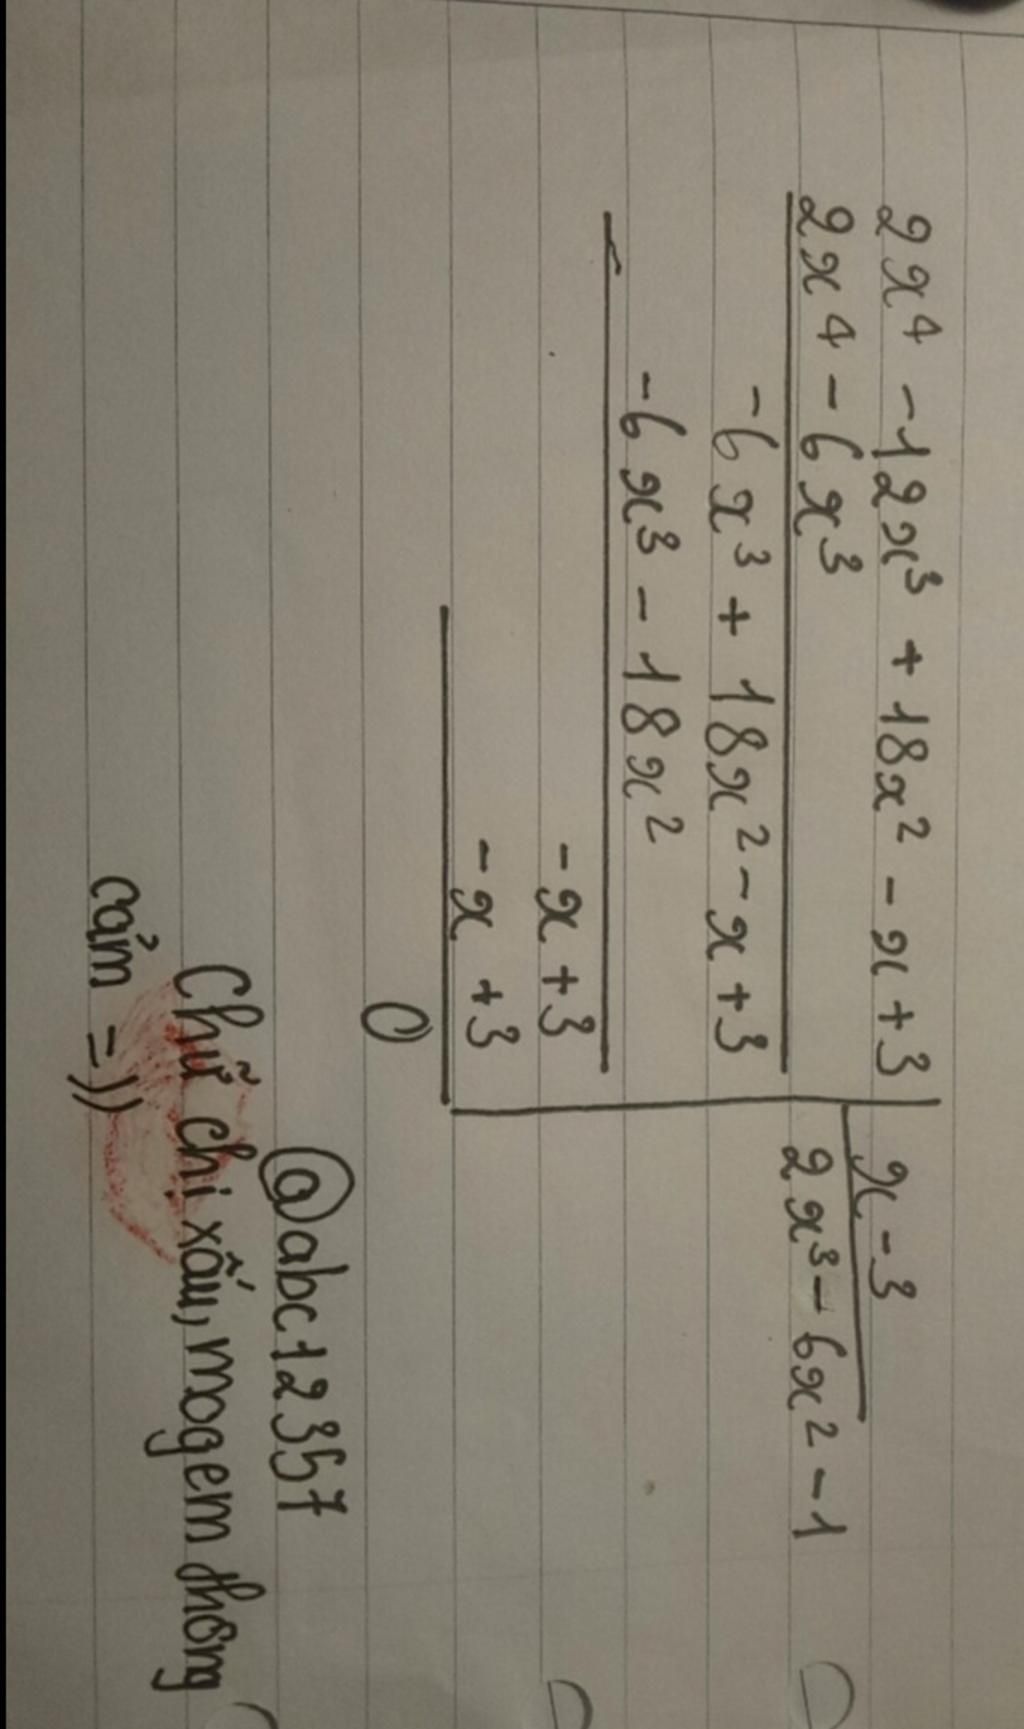 2x⁴ - 12x³ + 18x² - x + 3 | x - 3
2x⁴ - 6x³ | 2x³ - 6x² - 1
-6x³ + 18x² - x + 3
-6x³ - 18x²
-x + 3
-x + 3
0
@abc12357
Chữ chị xấu, mog em thông
cảm =))